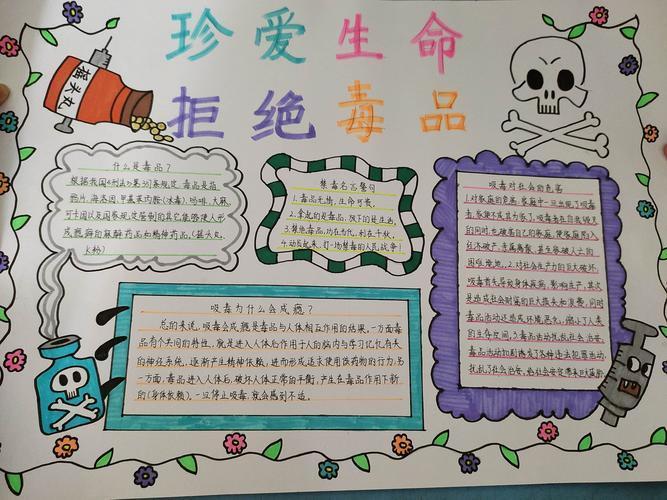 珍爱生命
拒绝毒品
摇头丸
什么是毒品？
根据我国《刑法》第357条规定，毒品是指
鸦片、海洛因、甲基苯丙胺（冰毒）、吗啡、大麻、
可卡因以及国家规定管制的其它能够使人形
成瘾癖的麻醉药品和精神药品。（摇头丸、
K粉）
禁毒名言警句
1.毒品无情，生命可贵。
2.拿起的是毒品，放下的是生活。
3.禁绝毒品，功在当代，利在千秋。
4.动员起来，打一场禁毒的人民战争！
吸毒对社会的危害
1.对家庭的危害：家庭中一旦出现了吸毒
者，家便不成其为家了。吸毒者在自我毁灭
的同时，也破害自己的家庭，使家庭陷入
经济破产、亲属离散、甚至家破人亡的
困难境地。2.对社会生产力的巨大破坏：
吸毒首先导致身体疾病，影响生产，其次
是造成社会财富的巨大损失和浪费，同时
毒品活动还造成环境恶化，缩小了人类
的生存空间。3.毒品活动扰乱社会治安：
毒品活动加剧诱发了各种违法犯罪活动，
扰乱了社会治安，给社会安定带来巨大威胁。
吸毒为什么会成瘾？
总的来说，吸毒会成瘾是毒品与人体相互作用的结果，一方面毒
品有个共同的特性，就是进入人体后作用于人的脑内与学习记忆有关
的神经系统，逐渐产生精神依赖，进而形成追求使用该药物的行为。另
一方面，毒品进入人体后，破坏人体正常的平衡，产生在毒品作用下新
的（身体依赖），一旦停止吸毒，就会感到不适。